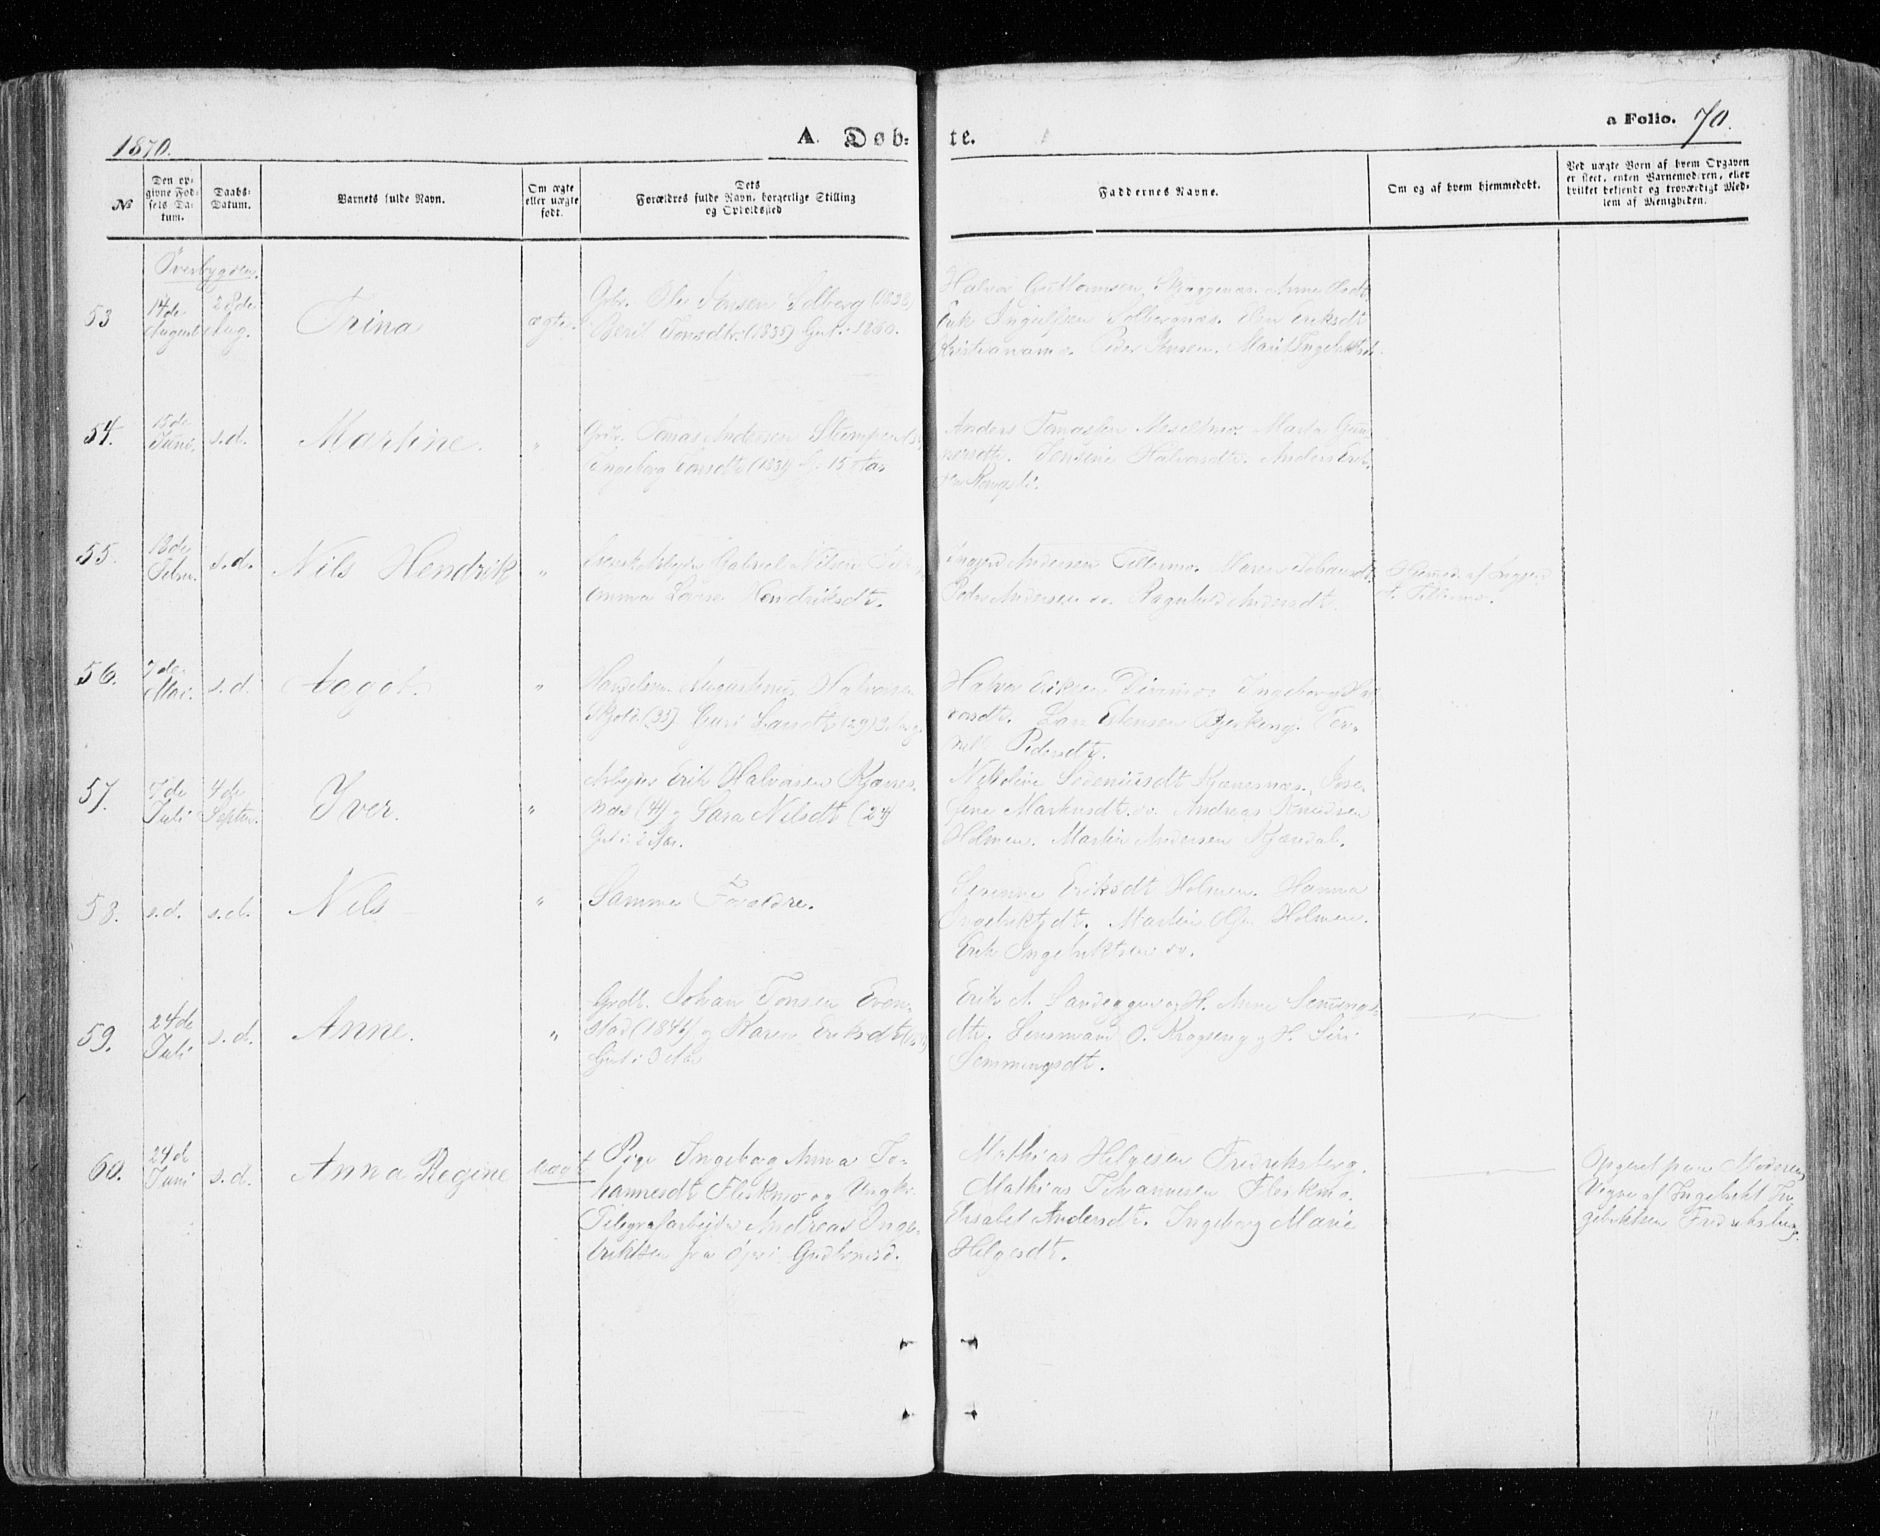 1870.
A. Døb-te.
a Folio. 70.
No
Den opgivne Fødsels Datum.
Daabs-Datum.
Barnets fulde Navn.
Om ægte eller uægte født.
Dets Forældres fulde Navn, borgerlige Stilling og Opholdssted
Faddernes Navne.
Om og af hvem hjemmedøbt.
Ved uægte Børn af hvem Opgaven er skeet, enten Barnemoderen, eller hvilket bekjendt og troværdigt Medlem af Menigheden.
Øverbygden.
53
14de August
28de Aug.
Trina
ægte
Grbr. Ole Jonsen Solberg (1828)
Berit Jonsdtr. (1835) Gvt. 1860.
Halvor Guttormsen
Erik Ingulfsen Solbergnæs. Elen Eriksdt
Kristianamo. Peder Jensen. Marit Ingebrktsdt
54.
Juni.
s.d.
Martine.
"
Tomas Andersen
Ingeborg Jonsdt (1831) G. 15 Aar
Anders Tomassen Moseltmo. Marta Gun-
nersdt. Jensine Halvorsdt. Anders Erik-
sen Rongli.
55.
18de Febru.
s.d.
Nils Hendrik
"
Gabriel Nilsen
Hendriksdt.
Ingjerd Andersen Tellermo. Maren Johansdt.
Peder Andersen do. Ragnhild Andersdt.
Hjemmed. af Ingjerd
A. Tellermo.
56.
7de Mai.
s.d.
Aagot.
"
Handelsm. Augustinus Halvorsen
Skjold (35) Guri Larsdt (29)
Halvor Eriksen Divimo. Ingeborg Hal-
vorsdt. Lars Estensen Bjerkeng.
Pedersdt.
57.
7de Juli
4de Septbr.
Iver.
"
Arbeider Erik Halvorsen Kjærres-
næs (41) og Sara Nilsdt (24)
Gvt i 2 Aar.
Nikoline Sedeniusdt Kjærresnæs. Jose-
fine Markusdt. do. Andreas Knudsen
Holmen. Martin Andersen
58.
s.d.
s.d.
Nils
"
Samme Forældre.
Serinne Eriksdt Holmen. Hanna
Ingebriktsdt. Martin Holmen.
Erik Ingebriktsen do.
59.
24de Juli
s.d.
Anne.
"
Grdb. Johan Tonsen Even-
stad (1841) og Maren Eriksdt
Gvt i 3 Aar
Erik A. Sandeggen og H. Anne
dtr. Lensmand O. Kragseng og H. Siri
Semmingsdt.
60.
24de Juni
s.d.
Anna Regine
uægte
Pige Ingeborg Anna Jo-
hannesdt Fleskmo og Ungk.
Telegrafarbejder Andreas Inge-
briktsen fra Øjer i Gudbrnsd.
Mathias Helgesen Fredriksberg.
Mathias Johannesen Fleskmo.
Elisabet Andersdt. Ingeborg Marie
Helgesdt.
Opgivet paa Moderens
Vegne af Ingebrikt In-
gebriktsen Fredriksberg.